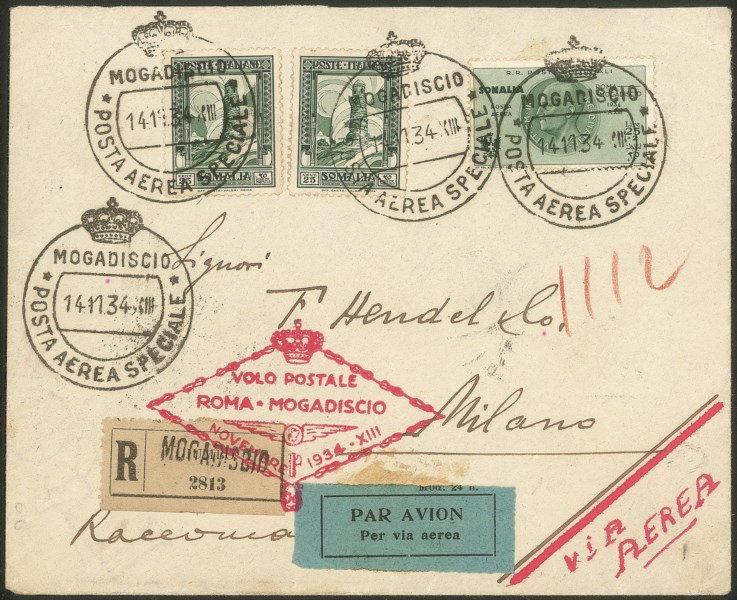 POSTE·ITALIANE
SOMALIA
25
POSTE·ITALIANE
SOMALIA
25
SOMALIA
POSTA
AEREA
MOGADISCIO
14.11.34·XIII
POSTA AEREA SPECIALE
MOGADISCIO
14.11.34·XIII
POSTA AEREA SPECIALE
MOGADISCIO
14.11.34·XIII
POSTA AEREA SPECIALE
MOGADISCIO
14.11.34·XIII
POSTA AEREA SPECIALE
Signori
1112
F. Hendel & Co.
VOLO POSTALE
ROMA·MOGADISCIO
NOVEMBRE 1934·XIII
Milano
R
MOGADISCIO
2813
Mod. 24 R.
PAR AVION
Per via aerea
VIA
AEREA